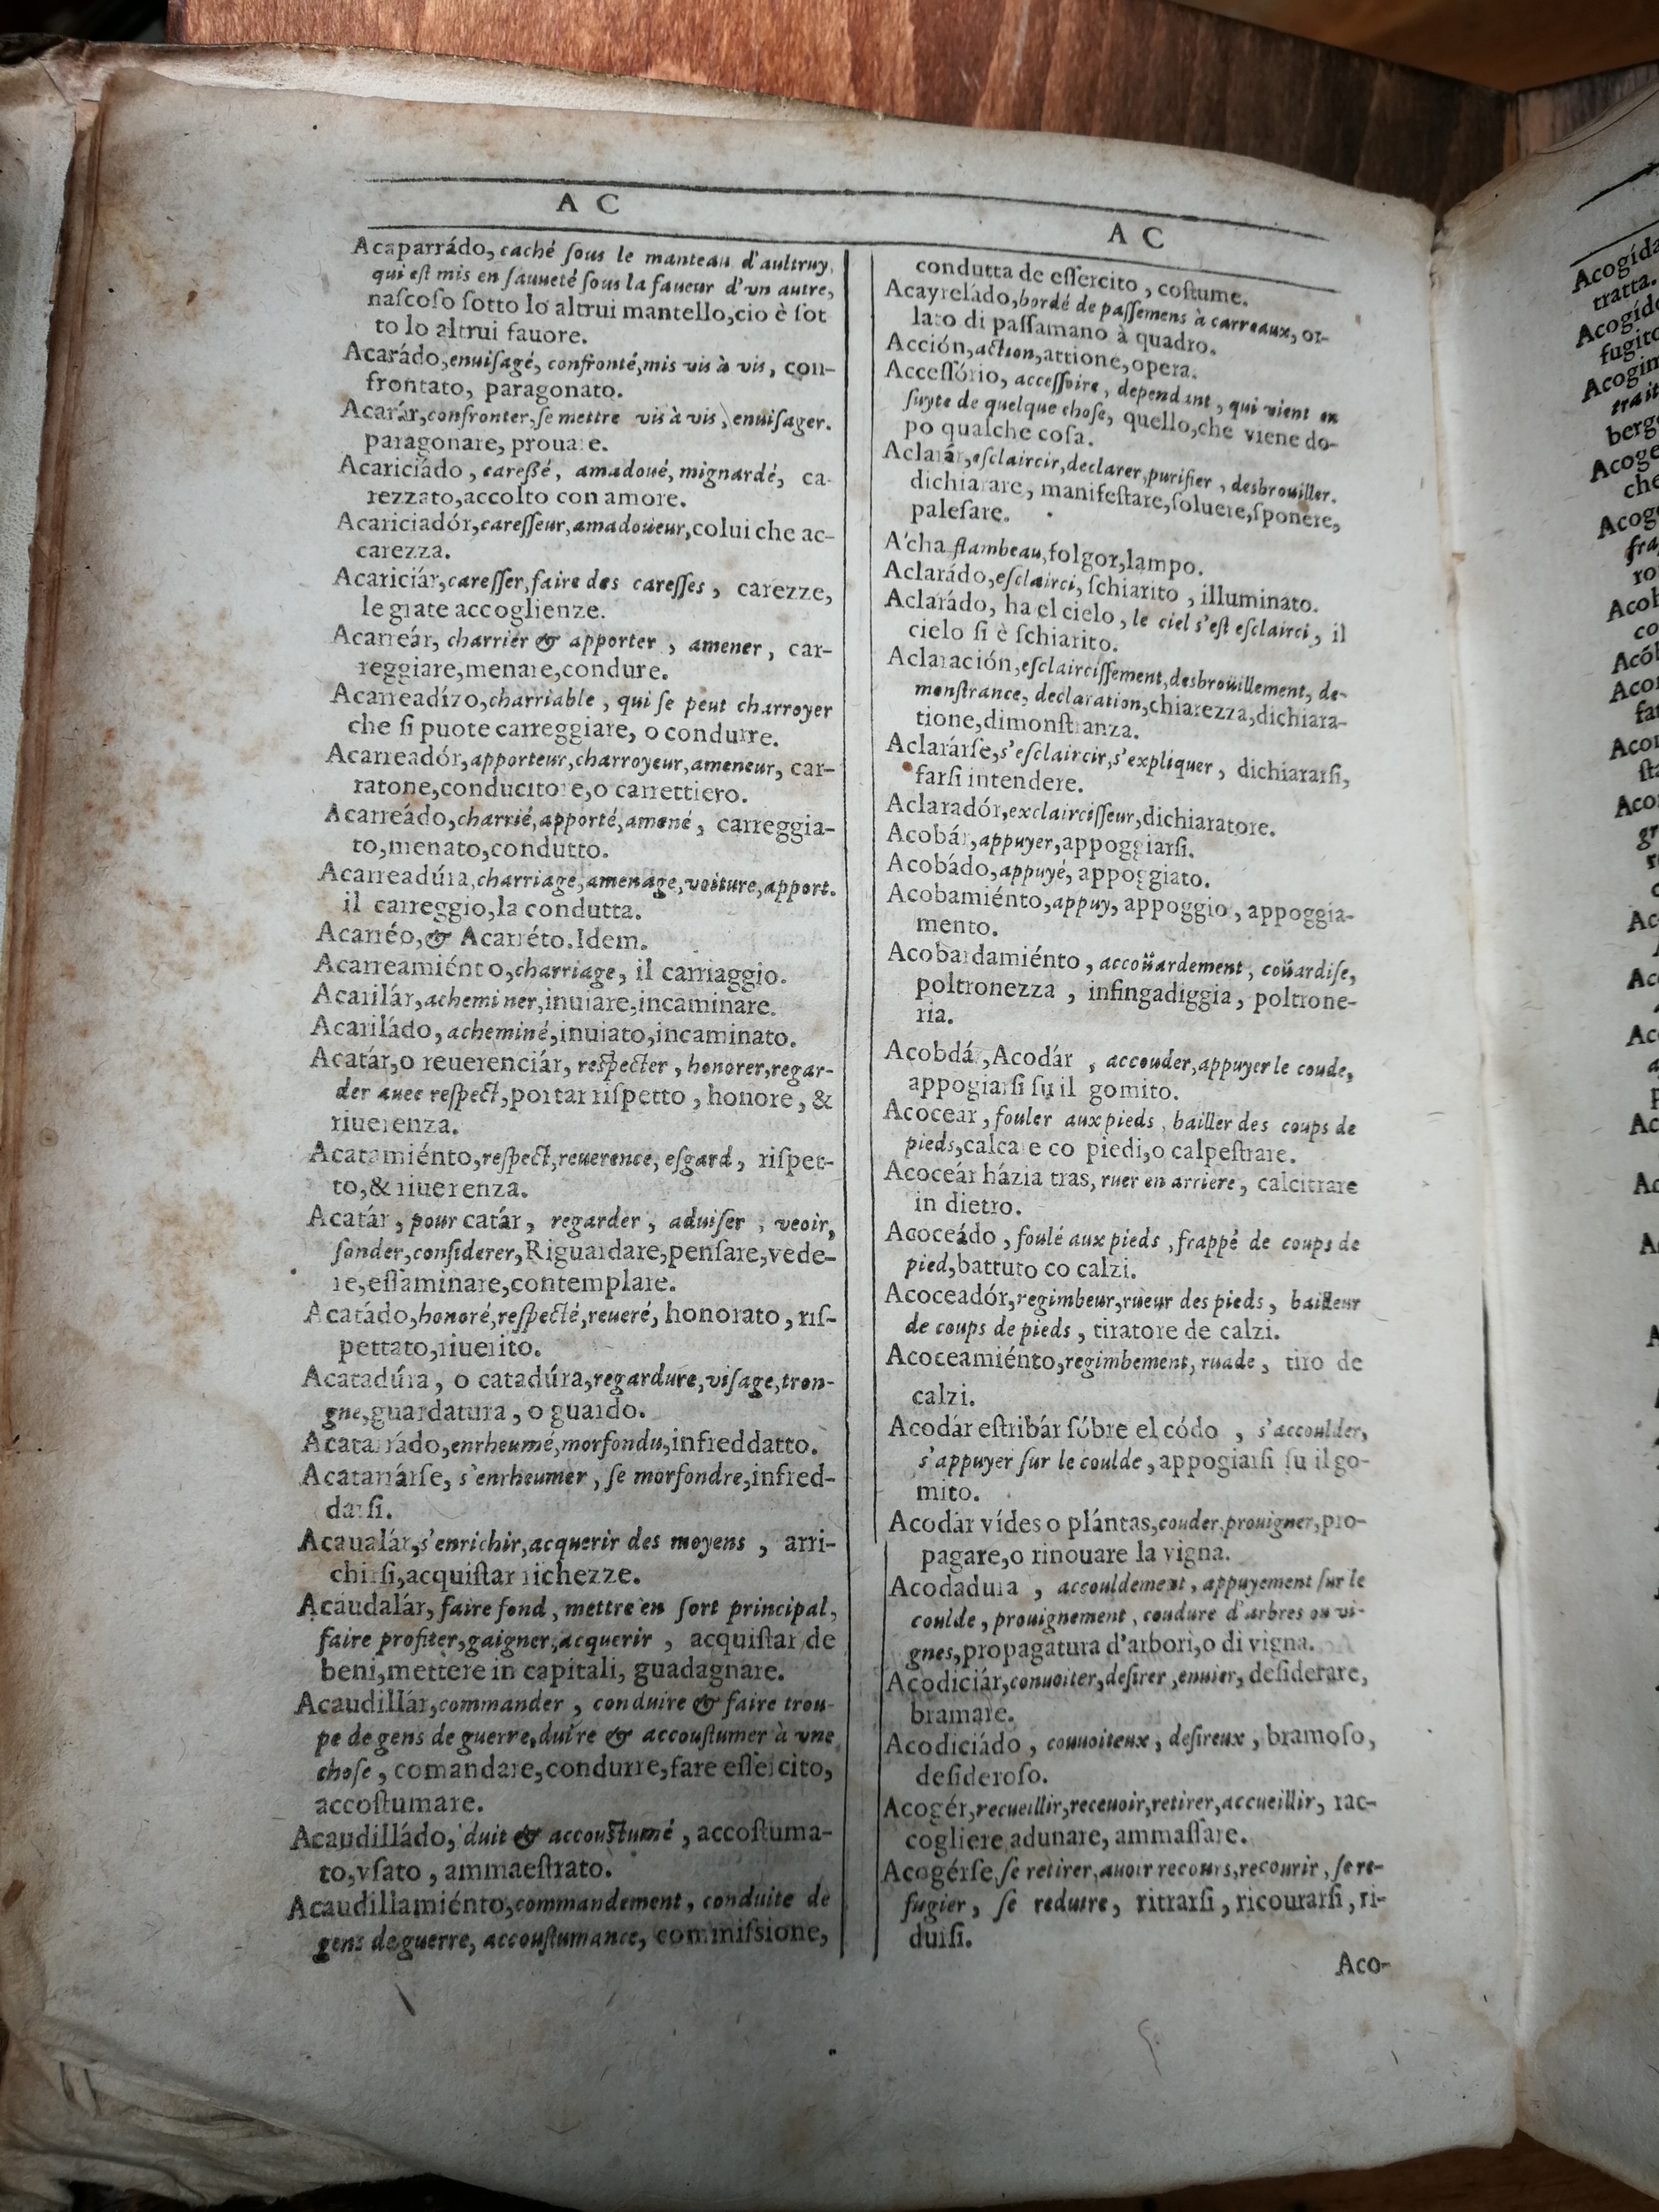 A C
Acaparrádo, caché ſous le manteau d'aultruy,
qui eſt mis en ſauueté ſous la faueur d'vn autre,
naſcoſo ſotto lo altrui mantello,cio è ſot
to lo altrui fauore.
Acarádo,enuiſagé, confronté,mis vis à vis, con-
frontato, paragonato.
Acarár,confronter,ſe mettre vis à vis, enuiſager.
paragonare, prouare.
Acariciádo, careßé, amadoué, mignardé, ca-
rezzato,accolto con amore.
Acariciadór,careſſeur,amadoüeur,colui che ac-
carezza.
Acariciár,careſſer,faire des careſſes, carezze,
le grate accoglienze.
Acarreár, charrier & apporter, amener, car-
reggiare,menare,condure.
Acarreadízo,charriable, qui ſe peut charroyer
che ſi puote carreggiare, o condurre.
Acarreadór,apporteur,charroyeur,ameneur, car-
ratone,conducitore,o carrettiero.
Acarreádo,charrié,apporté,amené, carreggia-
to,menato,condutto.
Acarreadúra,charriage,amenage,voiture,apport.
il carreggio,la condutta.
Acarréo,& Acarréto.Idem.
Acarreamiénto,charriage, il carriaggio.
Acarilár,acheminer,inuiare,incaminare.
Acariládo, acheminé,inuiato,incaminato.
Acatár,o reuerenciár, respecter, honorer,regar-
der auec reſpect,portar riſpetto, honore, &
riuerenza.
Acatamiénto,reſpect,reuerence, eſgard, riſpet-
to,& riuerenza.
Acatár, pour catár, regarder, aduiſer, veoir,
ſonder,conſiderer,Riguardare,penſare,vede-
re,eſſaminare,contemplare.
Acatádo,honoré,reſpecté,reueré, honorato, riſ-
pettato,riuerito.
Acatadúra, o catadúra,regardure,viſage,tron-
gne,guardatura, o guardo.
Acatarrádo,enrheumé,morfondu,infreddatto.
Acatarrárſe, s'enrheumer, ſe morfondre,infred-
darſi.
Acaualár,s'enrichir,acquerir des moyens, arri-
chirſi,acquiſtar richezze.
Acaudalár, faire fond, mettre en ſort principal,
faire profiter,gaigner,acquerir, acquiſtar de
beni,mettere in capitali, guadagnare.
Acaudillár,commander, conduire & faire trou-
pe de gens de guerre,duire & accouſtumer à vne
choſe, comandare,condurre,fare eſſercito,
accoſtumare.
Acaudilládo, duit & accouſtumé, accoſtuma-
to,vſato, ammaeſtrato.
Acaudillamiénto,commandement, conduite de
gens de guerre, accouſtumance, commiſsione,
A C
condutta de eſſercito, coſtume.
Acayreládo,bordé de paſſemens à carreaux, or-
lato di paſſamano à quadro.
Acción,action,attione,opera.
Acceſſório, acceſſoire, dependant, qui vient en
ſuyte de quelque choſe, quello,che viene do-
po qualche coſa.
Aclarár,eſclaircir,declarer,purifier, desbrouiller.
dichiarare, manifeſtare,ſoluere,ſponere,
paleſare.
A'cha flambeau,folgor,lampo.
Aclarádo,eſclairci, ſchiarito, illuminato.
Aclarádo, ha el cielo, le ciel s'eſt eſclairci, il
cielo ſi è ſchiarito.
Aclaración,eſclairciſſement,desbroüillement, de-
monſtrance, declaration,chiarezza,dichiara-
tione,dimonſtranza.
Aclarárſe,s'eſclaircir,s'expliquer, dichiararſi,
farſi intendere.
Aclaradór,exclairciſſeur,dichiaratore.
Acobár,appuyer,appoggiarſi.
Acobádo,appuyé, appoggiato.
Acobamiénto,appuy, appoggio, appoggia-
mento.
Acobardamiénto, accoüardement, coüardiſe,
poltronezza, infingadiggia, poltrone-
ria.
Acobdár,Acodár, accouder,appuyer le coude,
appogiarſi ſu il gomito.
Acocear, fouler aux pieds, bailler des coups de
pieds,calcare co piedi,o calpeſtrare.
Acoceár házia tras, ruer en arriere, calcitrare
in dietro.
Acoceádo, foulé aux pieds, frappé de coups de
pied,battuto co calzi.
Acoceadór,regimbeur,rueur des pieds, bailleur
de coups de pieds, tiratore de calzi.
Acoceamiénto,regimbement, ruade, tiro de
calzi.
Acodár eſtribár ſóbre el códo, s'accoulder,
s'appuyer ſur le coulde, appogiarſi ſu il go-
mito.
Acodár vídes o plántas,couder,prouigner,pro-
pagare,o rinouare la vigna.
Acodadura, accouldement, appuyement ſur le
coulde, prouignement, coudure d'arbres ou vi-
gnes,propagatura d'arbori,o di vigna.
Acodiciár,conuoiter,deſirer,enuier, deſiderare,
bramare.
Acodiciádo, conuoiteux, deſireux, bramoſo,
deſideroſo.
Acogér,recueillir,receuoir,retirer,accueillir, rac-
cogliere adunare, ammaſſare.
Acogérſe,ſe retirer,auoir recours,recourir, ſe re-
fugier, ſe reduire, ritrarſi, ricourarſi, ri-
durſi.
Aco-
Acogída
tratta.
fugito
berg
che